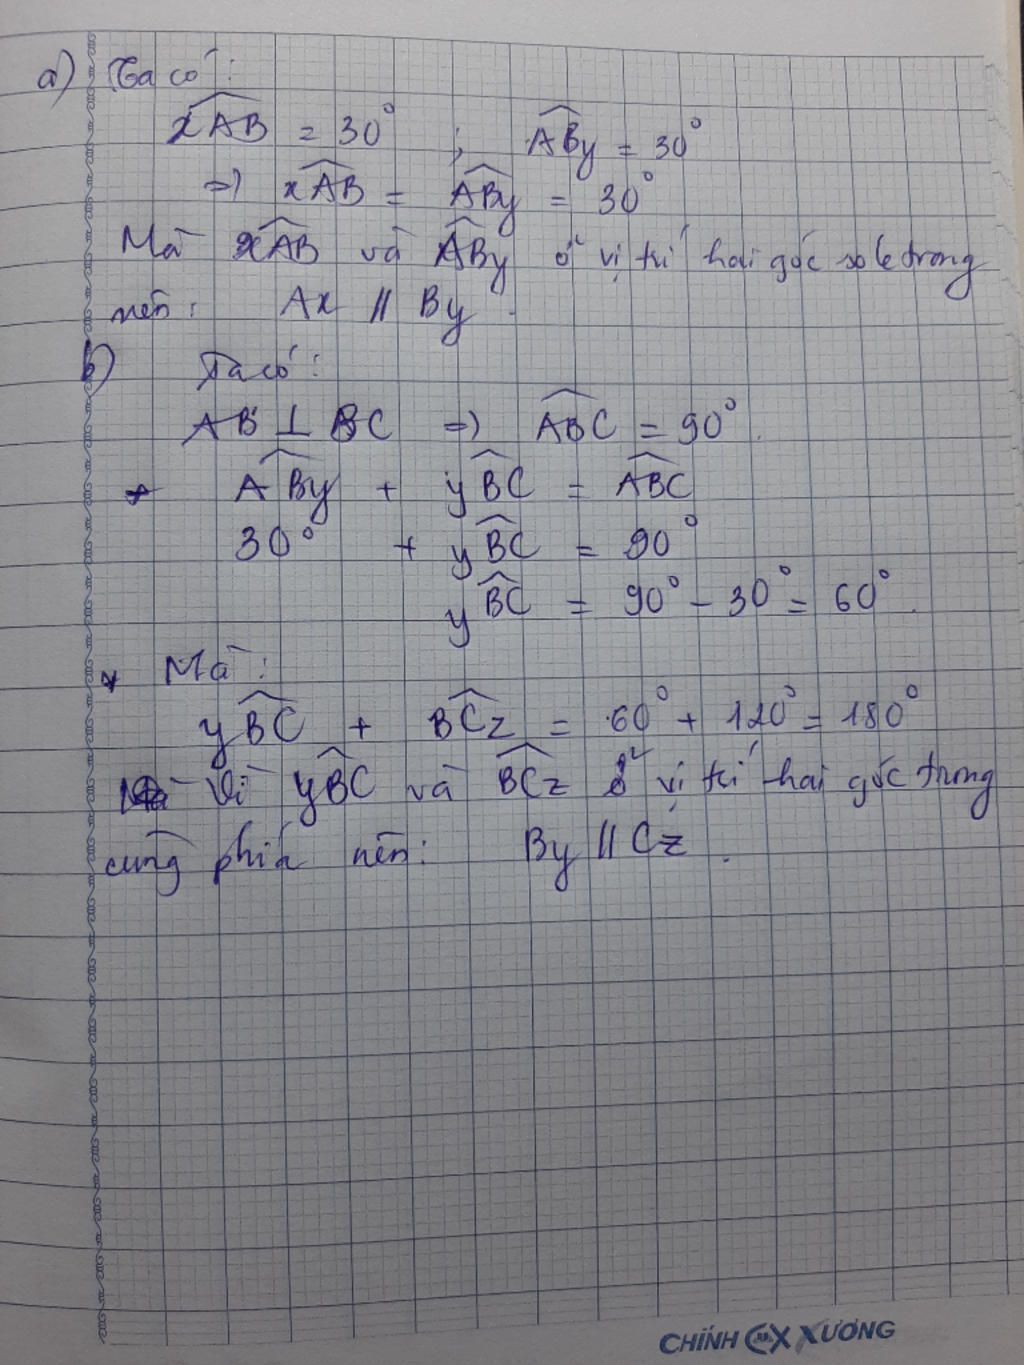 a) Ta có:
xAB = 30° ; ABy = 30°
=> xAB = ABy = 30°
Mà xAB và ABy ở vị trí hai góc so le trong
nên: Ax // By.
b) Ta có:
AB ⊥ BC => ABC = 90°.
* ABy + yBC = ABC
30° + yBC = 90°
yBC = 90° - 30° = 60°.
* Mà:
yBC + BCz = 60° + 120° = 180°
Vì yBC và BCz ở vị trí hai góc trong
cùng phía nên: By // Cz.
CHÍNH XƯƠNG